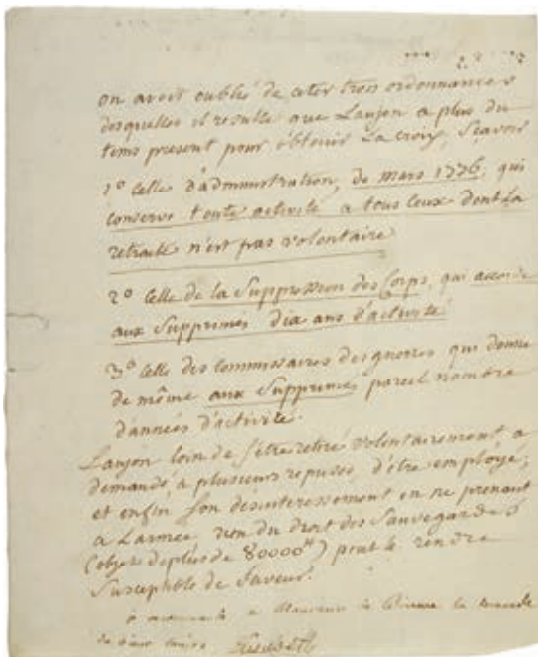 on avoit oublié de citer trois ordonnances
desquelles il resulte que Laujon a plus du
tems present pour obtenir La croix, Sçavoir
1º Celle d'administration, de mars 1776, qui
conserve toute activité a tous ceux dont La
retraite n'est pas volontaire
2º Celle de la Suppression des Corps, qui accorde
aux Supprimés dix ans d'activité
3º Celle des Commissaires des guerres qui donne
de même aux Supprimés pareil nombre
d'années d'activité.
Laujon loin de s'être retiré volontairement, a
demandé, a plusieurs reprises, d'être employé;
et enfin Son désinteressement en ne prenant
a L'armée rien du droit des Sauvegardes
(objet de plus de 80000#) peut le rendre
Susceptible de faveur.
a Monsieur le la demande